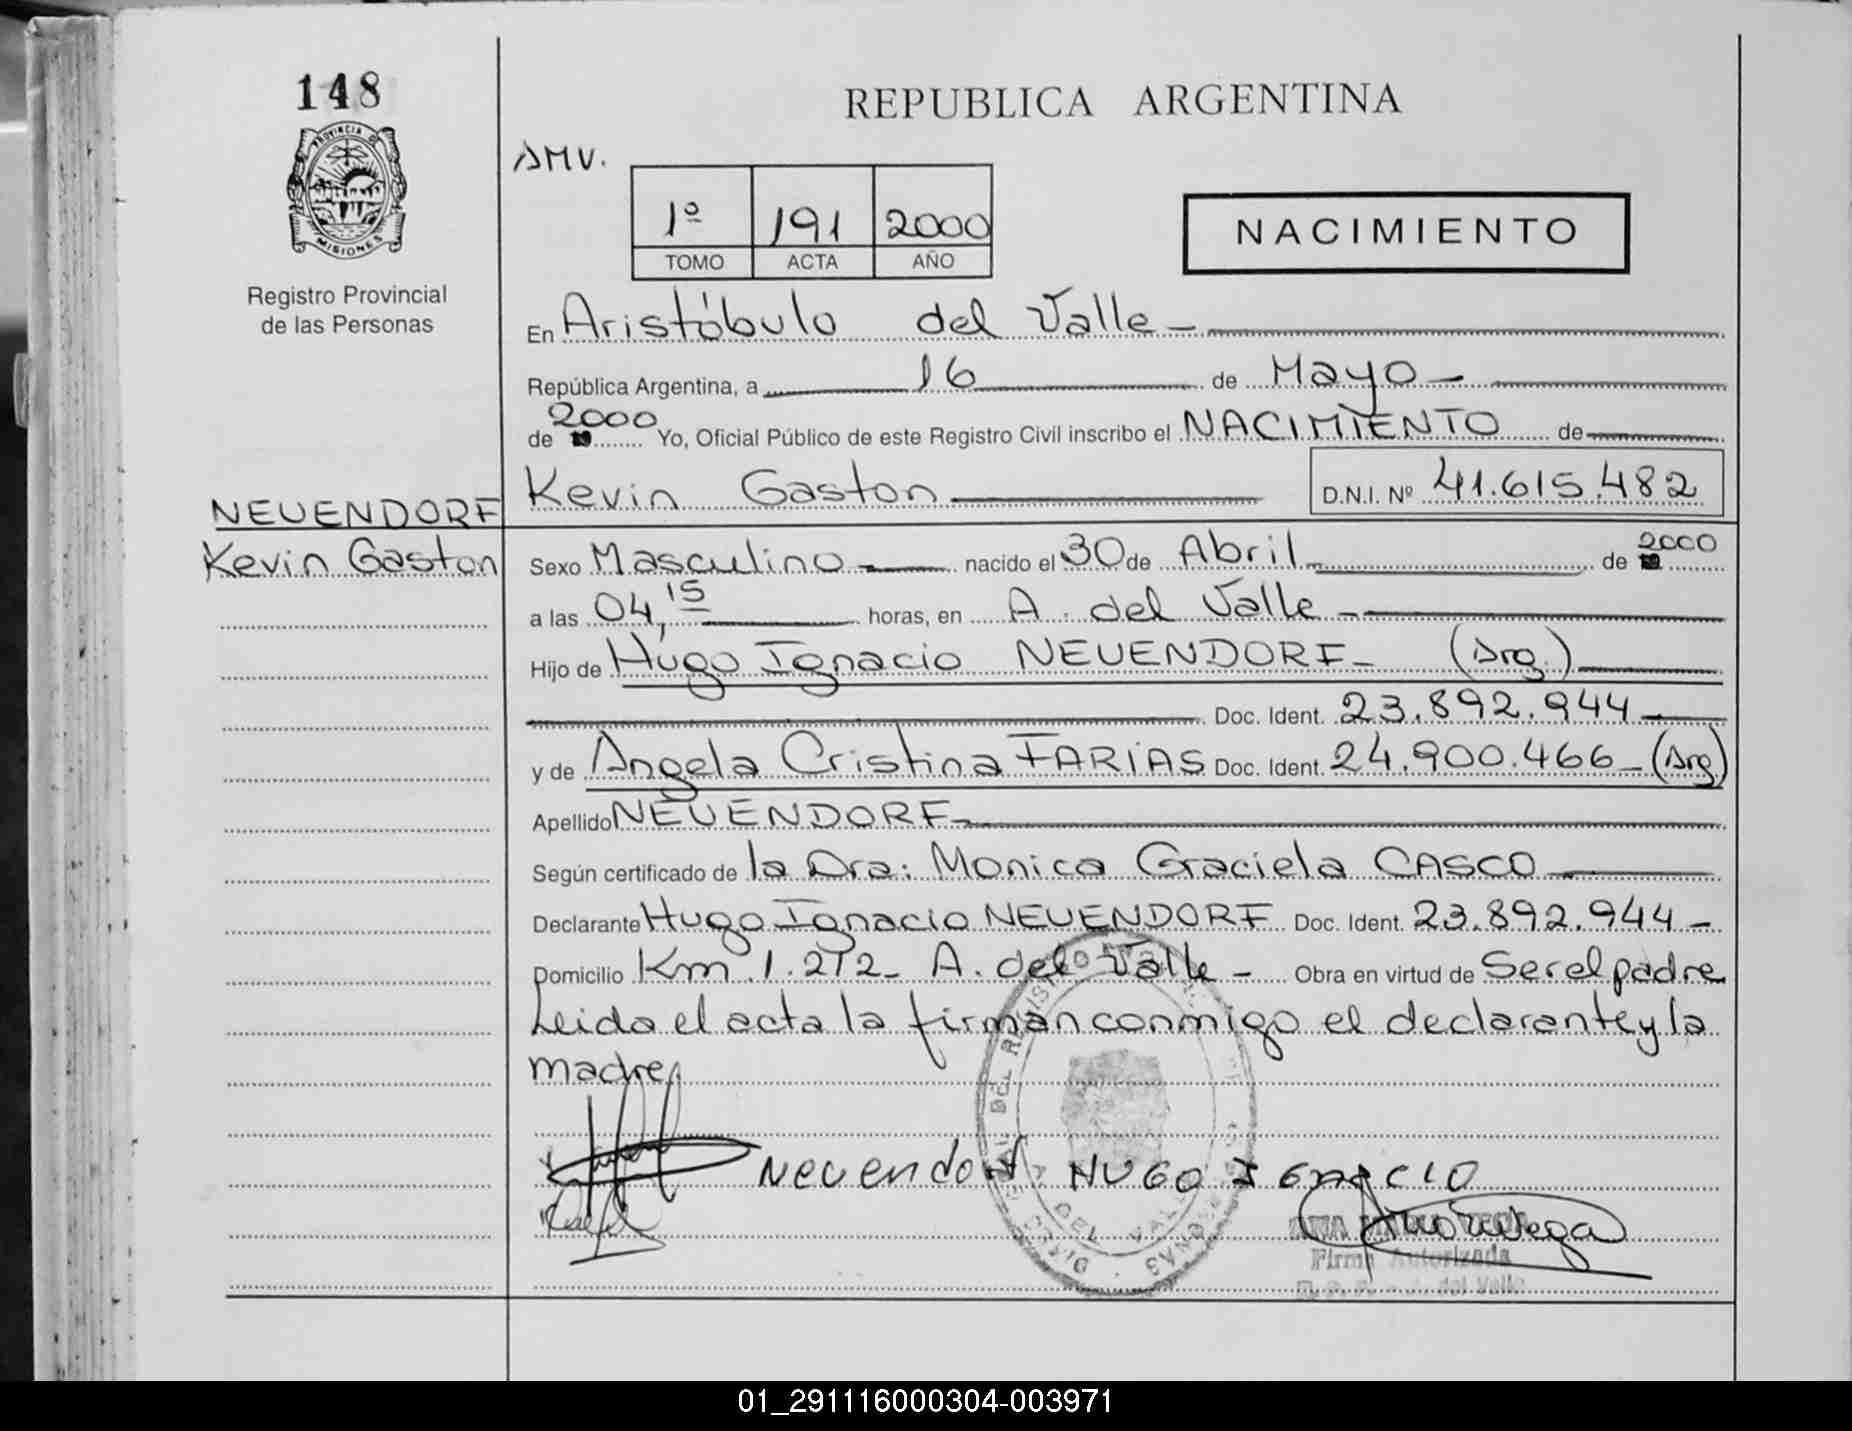 148
PROVINCIA DE
MISIONES
Registro Provincial
de las Personas
NEUENDORF
Kevin Gaston
REPUBLICA ARGENTINA
AMV.
1º 191 2000
TOMO ACTA AÑO
NACIMIENTO
En Aristóbulo del Valle-
República Argentina, a 16 de Mayo-
de 2000 Yo, Oficial Público de este Registro Civil inscribo el NACIMIENTO de
Kevin Gaston D.N.I. Nº 41.615.482
Sexo Masculino nacido el 30 de Abril de 2000
a las 04,15 horas, en A. del Valle-
Hijo de Hugo Ignacio NEUENDORF- (Arg.)
Doc. Ident. 23.892.944-
y de Angela Cristina FARIAS Doc. Ident. 24.900.466-(Arg)
Apellido NEUENDORF-
Según certificado de la Dra: Monica Graciela CASCO
Declarante Hugo Ignacio NEUENDORF Doc. Ident. 23.892.944-
Domicilio Km 1.272- A. del Valle- Obra en virtud de Ser el padre
Leida el acta la firman conmigo el declarante y la
madre
Neuendorf HUGO IGNACIO
Firma Autorizada
01_291116000304-003971